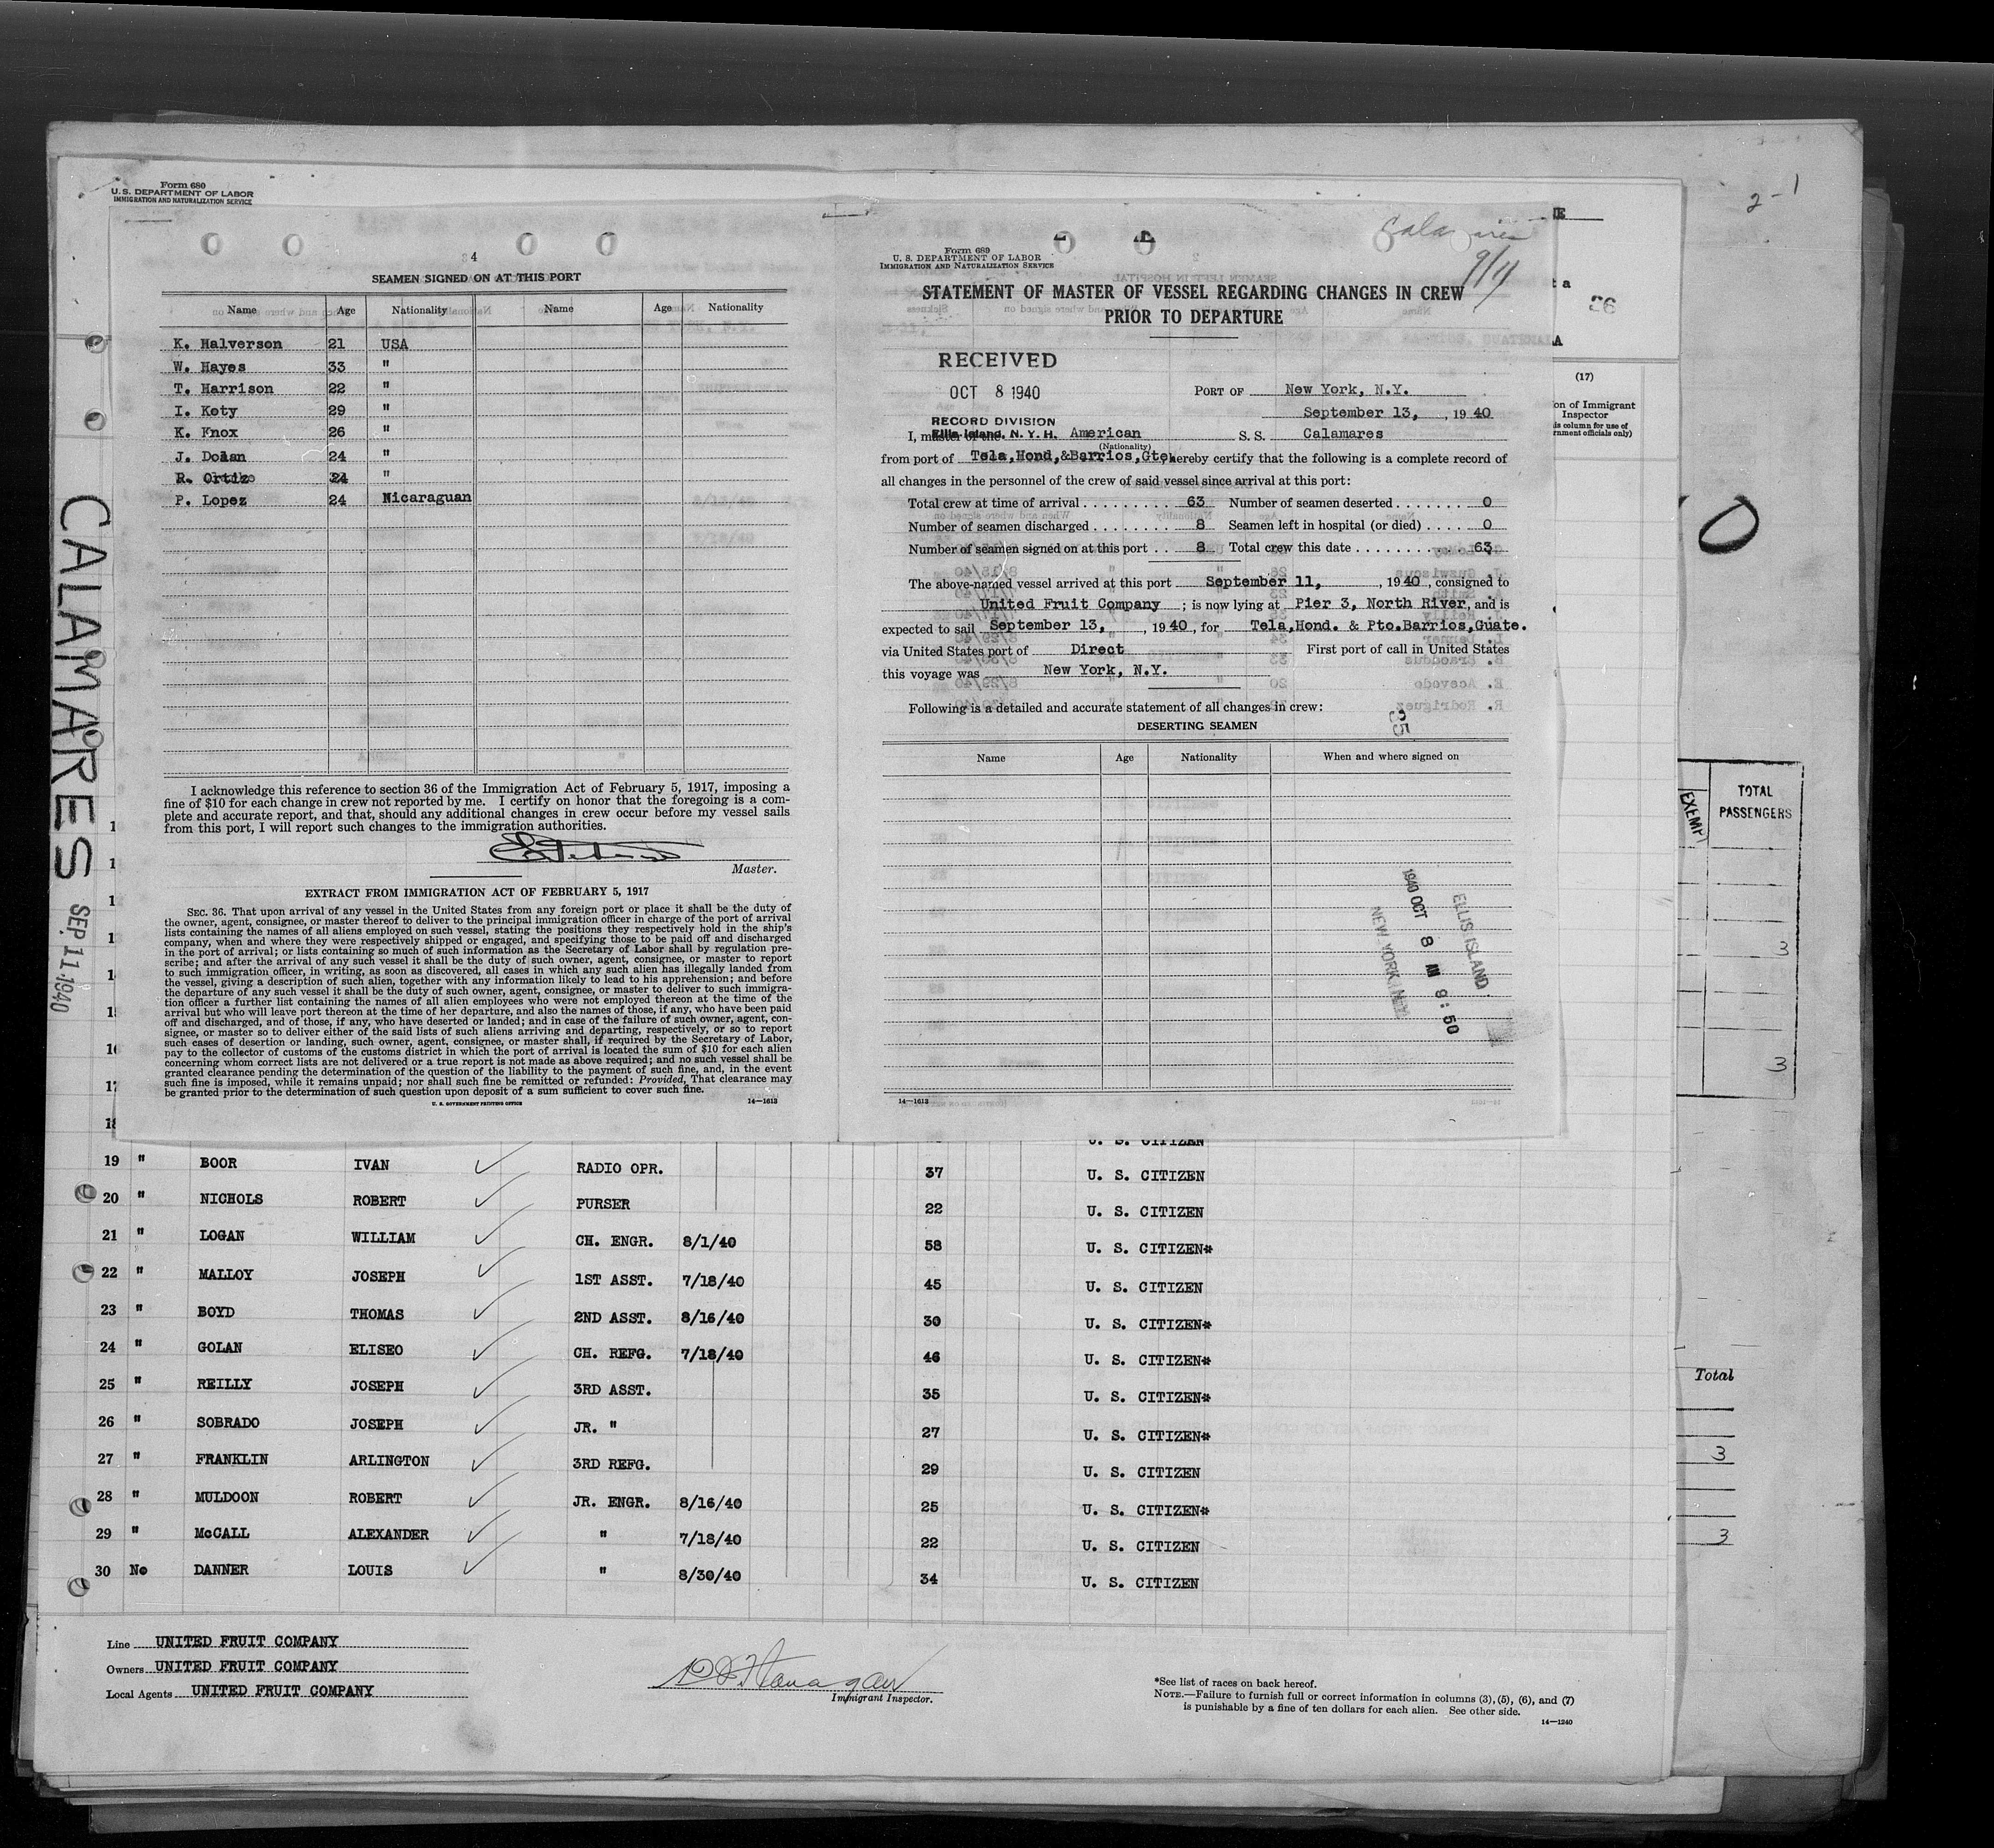 Form 680
U.S. DEPARTMENT OF LABOR
IMMIGRATION AND NATURALIZATION SERVICE
4
SEAMEN SIGNED ON AT THIS PORT
Name Age Nationality Name Age Nationality
K. Halverson 21 USA
W. Hayes 33 "
T. Harrison 22 "
I. Koty 29 "
K. Knox 26 "
J. Dolan 24 "
R. Ortiz 24 "
P. Lopez 24 Nicaraguan
I acknowledge this reference to section 36 of the Immigration Act of February 5, 1917, imposing a
fine of $10 for each change in crew not reported by me. I certify on honor that the foregoing is a com-
plete and accurate report, and that, should any additional changes in crew occur before my vessel sails
from this port, I will report such changes to the immigration authorities.
Master.
EXTRACT FROM IMMIGRATION ACT OF FEBRUARY 5, 1917
SEC. 36. That upon arrival of any vessel in the United States from any foreign port or place it shall be the duty of
the owner, agent, consignee, or master thereof to deliver to the principal immigration officer in charge of the port of arrival
lists containing the names of all aliens employed on such vessel, stating the positions they respectively hold in the ship's
company, when and where they were respectively shipped or engaged, and specifying those to be paid off and discharged
in the port of arrival; or lists containing so much of such information as the Secretary of Labor shall by regulation pre-
scribe; and after the arrival of any such vessel it shall be the duty of such owner, agent, consignee, or master to report
to such immigration officer, in writing, as soon as discovered, all cases in which any such alien has illegally landed from
the vessel, giving a description of such alien, together with any information likely to lead to his apprehension; and before
the departure of any such vessel it shall be the duty of such owner, agent, consignee, or master to deliver to such immigra-
tion officer a further list containing the names of all alien employees who were not employed thereon at the time of the
arrival but who will leave port thereon at the time of her departure, and also the names of those, if any, who have been paid
off and discharged, and of those, if any, who have deserted or landed; and in case of the failure of such owner, agent, con-
signee, or master so to deliver either of the said lists of such aliens arriving and departing, respectively, or so to report
such cases of desertion or landing, such owner, agent, consignee, or master shall, if required by the Secretary of Labor,
pay to the collector of customs of the customs district in which the port of arrival is located the sum of $10 for each alien
concerning whom correct lists are not delivered or a true report is not made as above required; and no such vessel shall be
granted clearance pending the determination of the question of the liability to the payment of such fine, and, in the event
such fine is imposed, while it remains unpaid; nor shall such fine be remitted or refunded: Provided, That clearance may
be granted prior to the determination of such question upon deposit of a sum sufficient to cover such fine.
U. S. GOVERNMENT PRINTING OFFICE 14—1613
Calamares
9/11
Form 689
U. S. DEPARTMENT OF LABOR
IMMIGRATION AND NATURALIZATION SERVICE
STATEMENT OF MASTER OF VESSEL REGARDING CHANGES IN CREW
PRIOR TO DEPARTURE
RECEIVED
OCT 8 1940
RECORD DIVISION
Ellis Island, N. Y. H.
PORT OF New York, N.Y.
September 13, , 1940
I, master of the American S. S. Calamares
(Nationality)
from port of Tela,Hond,&Barrios,Gte hereby certify that the following is a complete record of
all changes in the personnel of the crew of said vessel since arrival at this port:
Total crew at time of arrival . . . . 63 Number of seamen deserted . . . . 0
Number of seamen discharged . . . . 8 Seamen left in hospital (or died) . . . . 0
Number of seamen signed on at this port . . 8 Total crew this date . . . . 63
The above-named vessel arrived at this port September 11, , 1940, consigned to
United Fruit Company ; is now lying at Pier 3, North River, and is
expected to sail September 13, , 1940, for Tela,Hond. & Pto.Barrios,Guate.
via United States port of Direct First port of call in United States
this voyage was New York, N.Y.
Following is a detailed and accurate statement of all changes in crew:
35
DESERTING SEAMEN
Name Age Nationality When and where signed on
ELLIS ISLAND
1940 OCT 8 AM 9:50
NEW YORK
14—1613
2-1
(17)
on of Immigrant
Inspector
is column for use of
rnment officials only)
EXEMPT
TOTAL
PASSENGERS
3
3
Total
3
3
CALAMARES SEP. 11, 1940
U. S. CITIZEN
19 " BOOR IVAN RADIO OPR. 37 U. S. CITIZEN
20 " NICHOLS ROBERT PURSER 22 U. S. CITIZEN
21 " LOGAN WILLIAM CH. ENGR. 8/1/40 58 U. S. CITIZEN*
22 " MALLOY JOSEPH 1ST ASST. 7/18/40 45 U. S. CITIZEN
23 " BOYD THOMAS 2ND ASST. 8/16/40 30 U. S. CITIZEN*
24 " GOLAN ELISEO CH. REFG. 7/18/40 46 U. S. CITIZEN*
25 " REILLY JOSEPH 3RD ASST. 35 U. S. CITIZEN*
26 " SOBRADO JOSEPH JR. " 27 U. S. CITIZEN*
27 " FRANKLIN ARLINGTON 3RD REFG. 29 U. S. CITIZEN
28 " MULDOON ROBERT JR. ENGR. 8/16/40 25 U. S. CITIZEN*
29 " McCALL ALEXANDER " 7/18/40 22 U. S. CITIZEN
30 No DANNER LOUIS " 8/30/40 34 U. S. CITIZEN
Line UNITED FRUIT COMPANY
Owners UNITED FRUIT COMPANY
Local Agents UNITED FRUIT COMPANY
Immigrant Inspector.
*See list of races on back hereof.
NOTE.—Failure to furnish full or correct information in columns (3), (5), (6), and (7)
is punishable by a fine of ten dollars for each alien. See other side.
14—1240